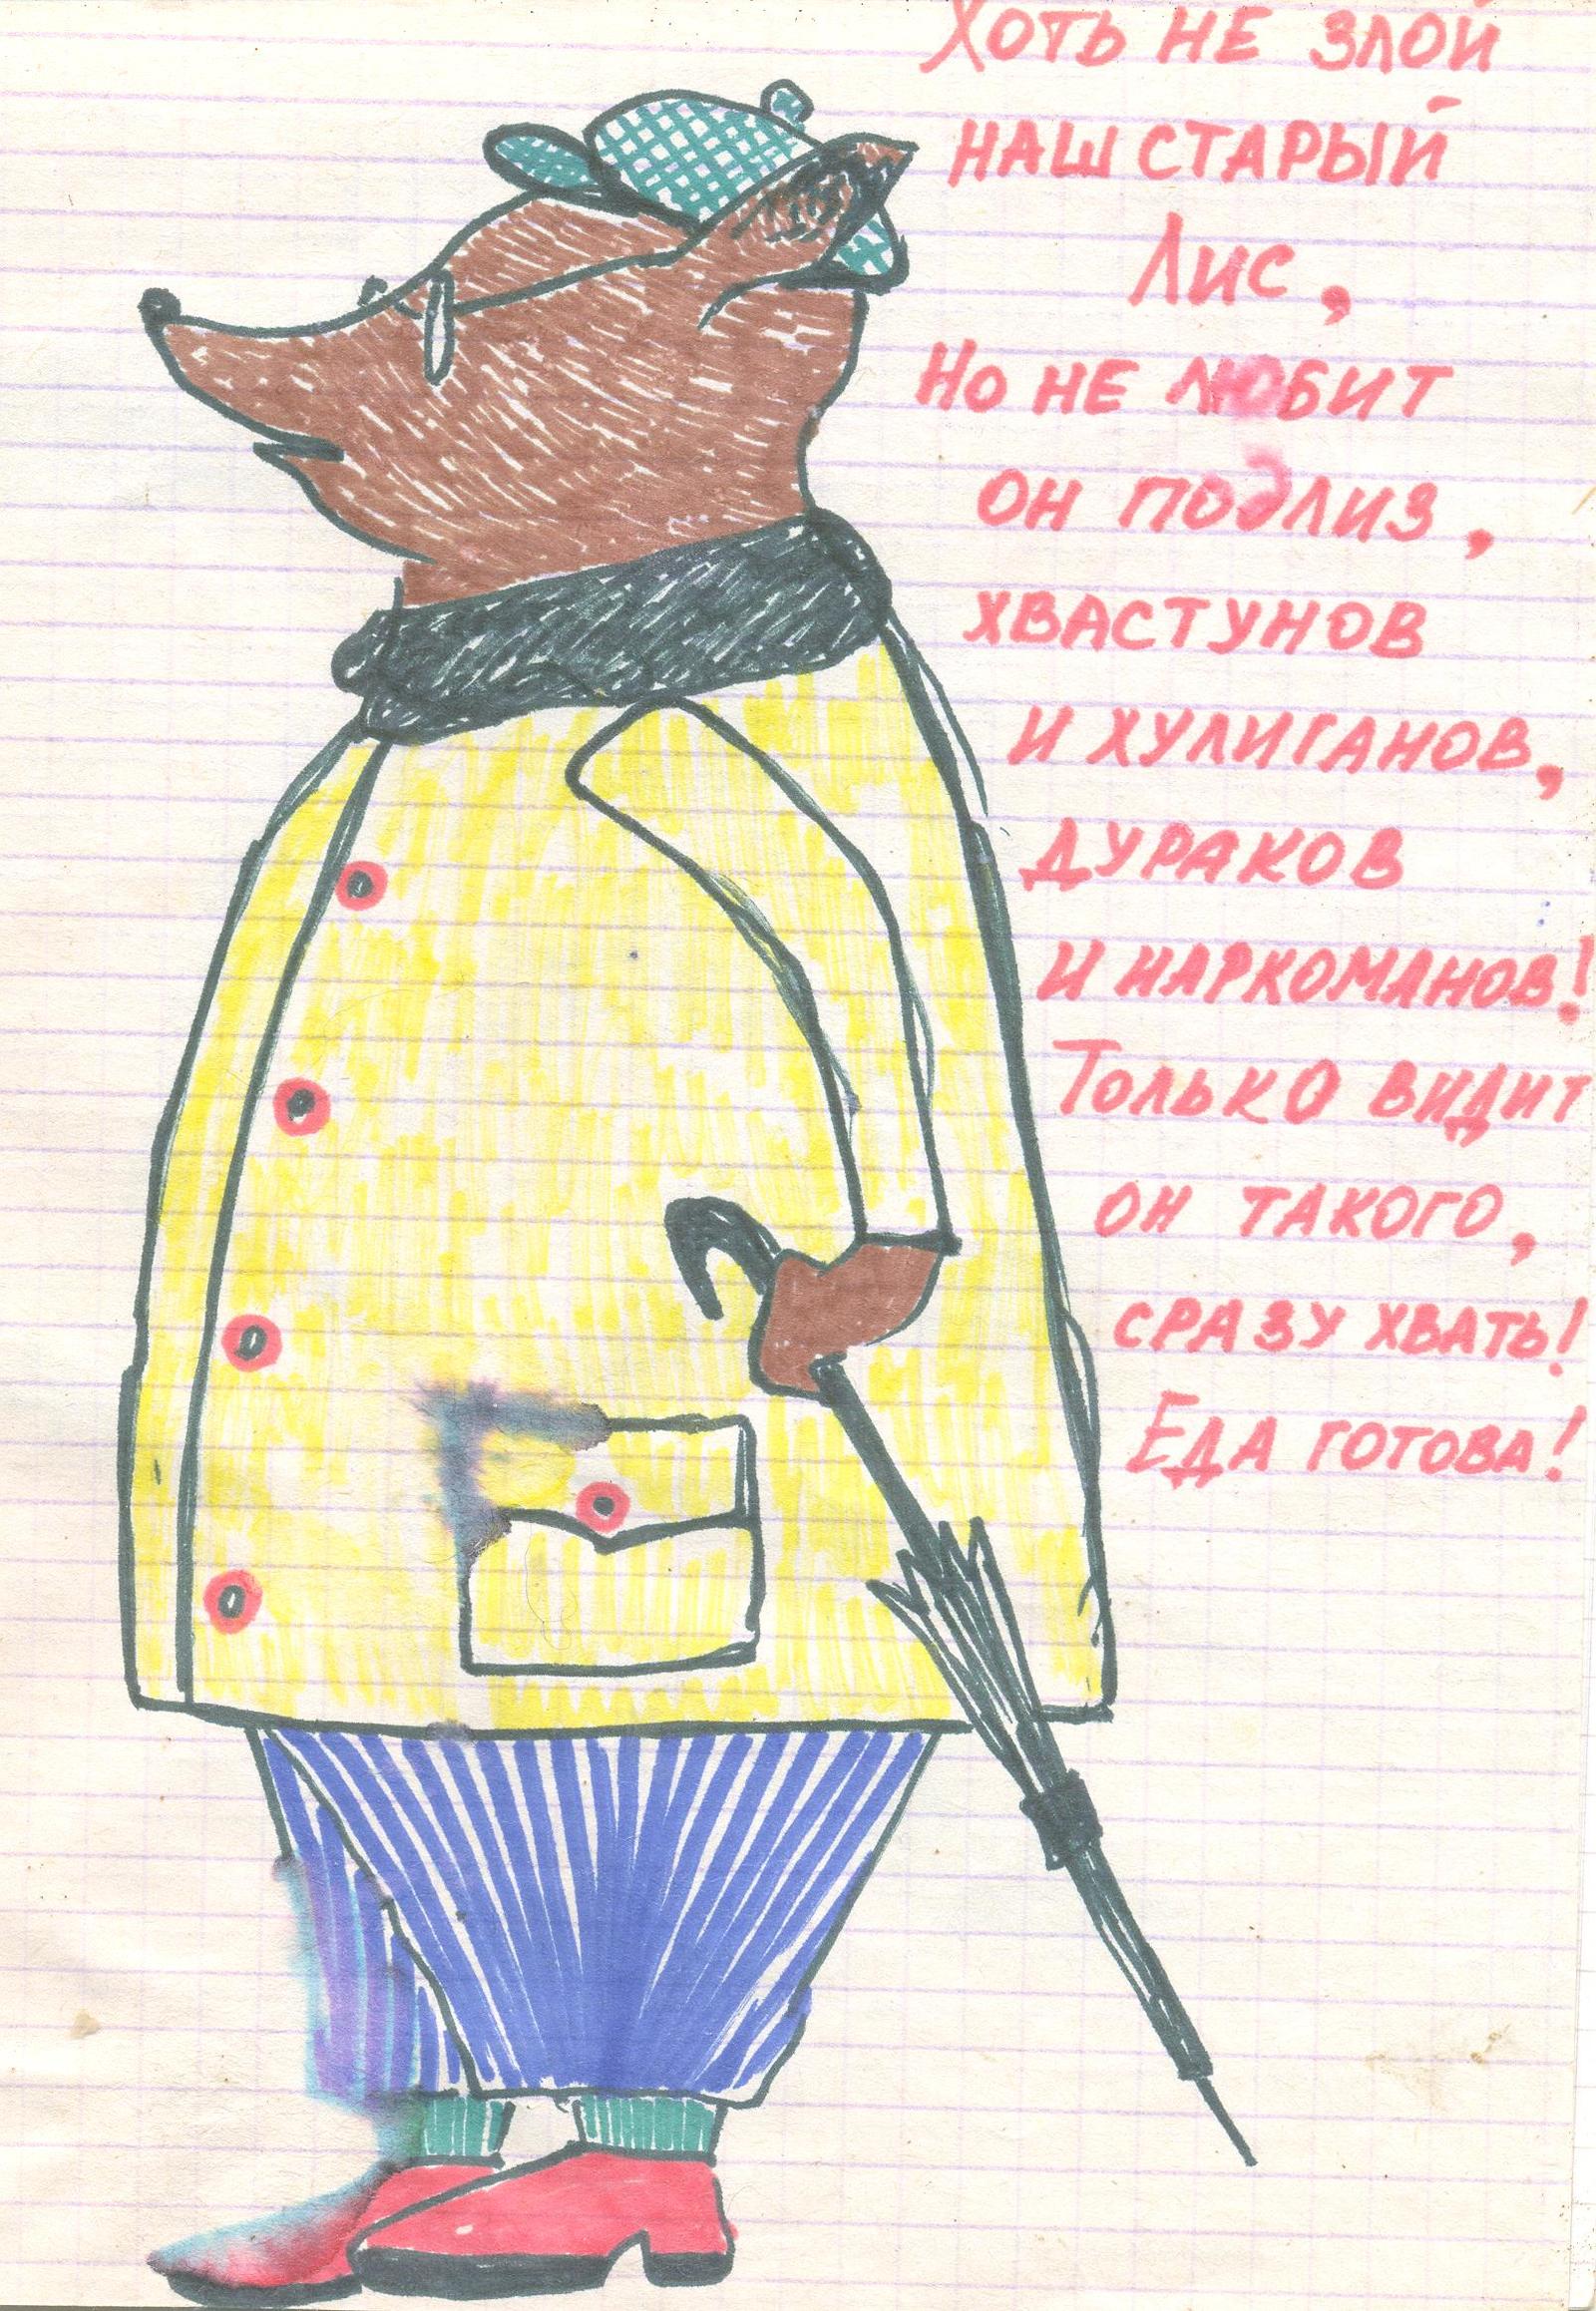 Хоть не злой
наш старый
Лис,
Но не любит
он подлиз,
хвастунов
и хулиганов,
дураков
и наркоманов!
Только видит
он такого,
сразу хвать!
Еда готова!